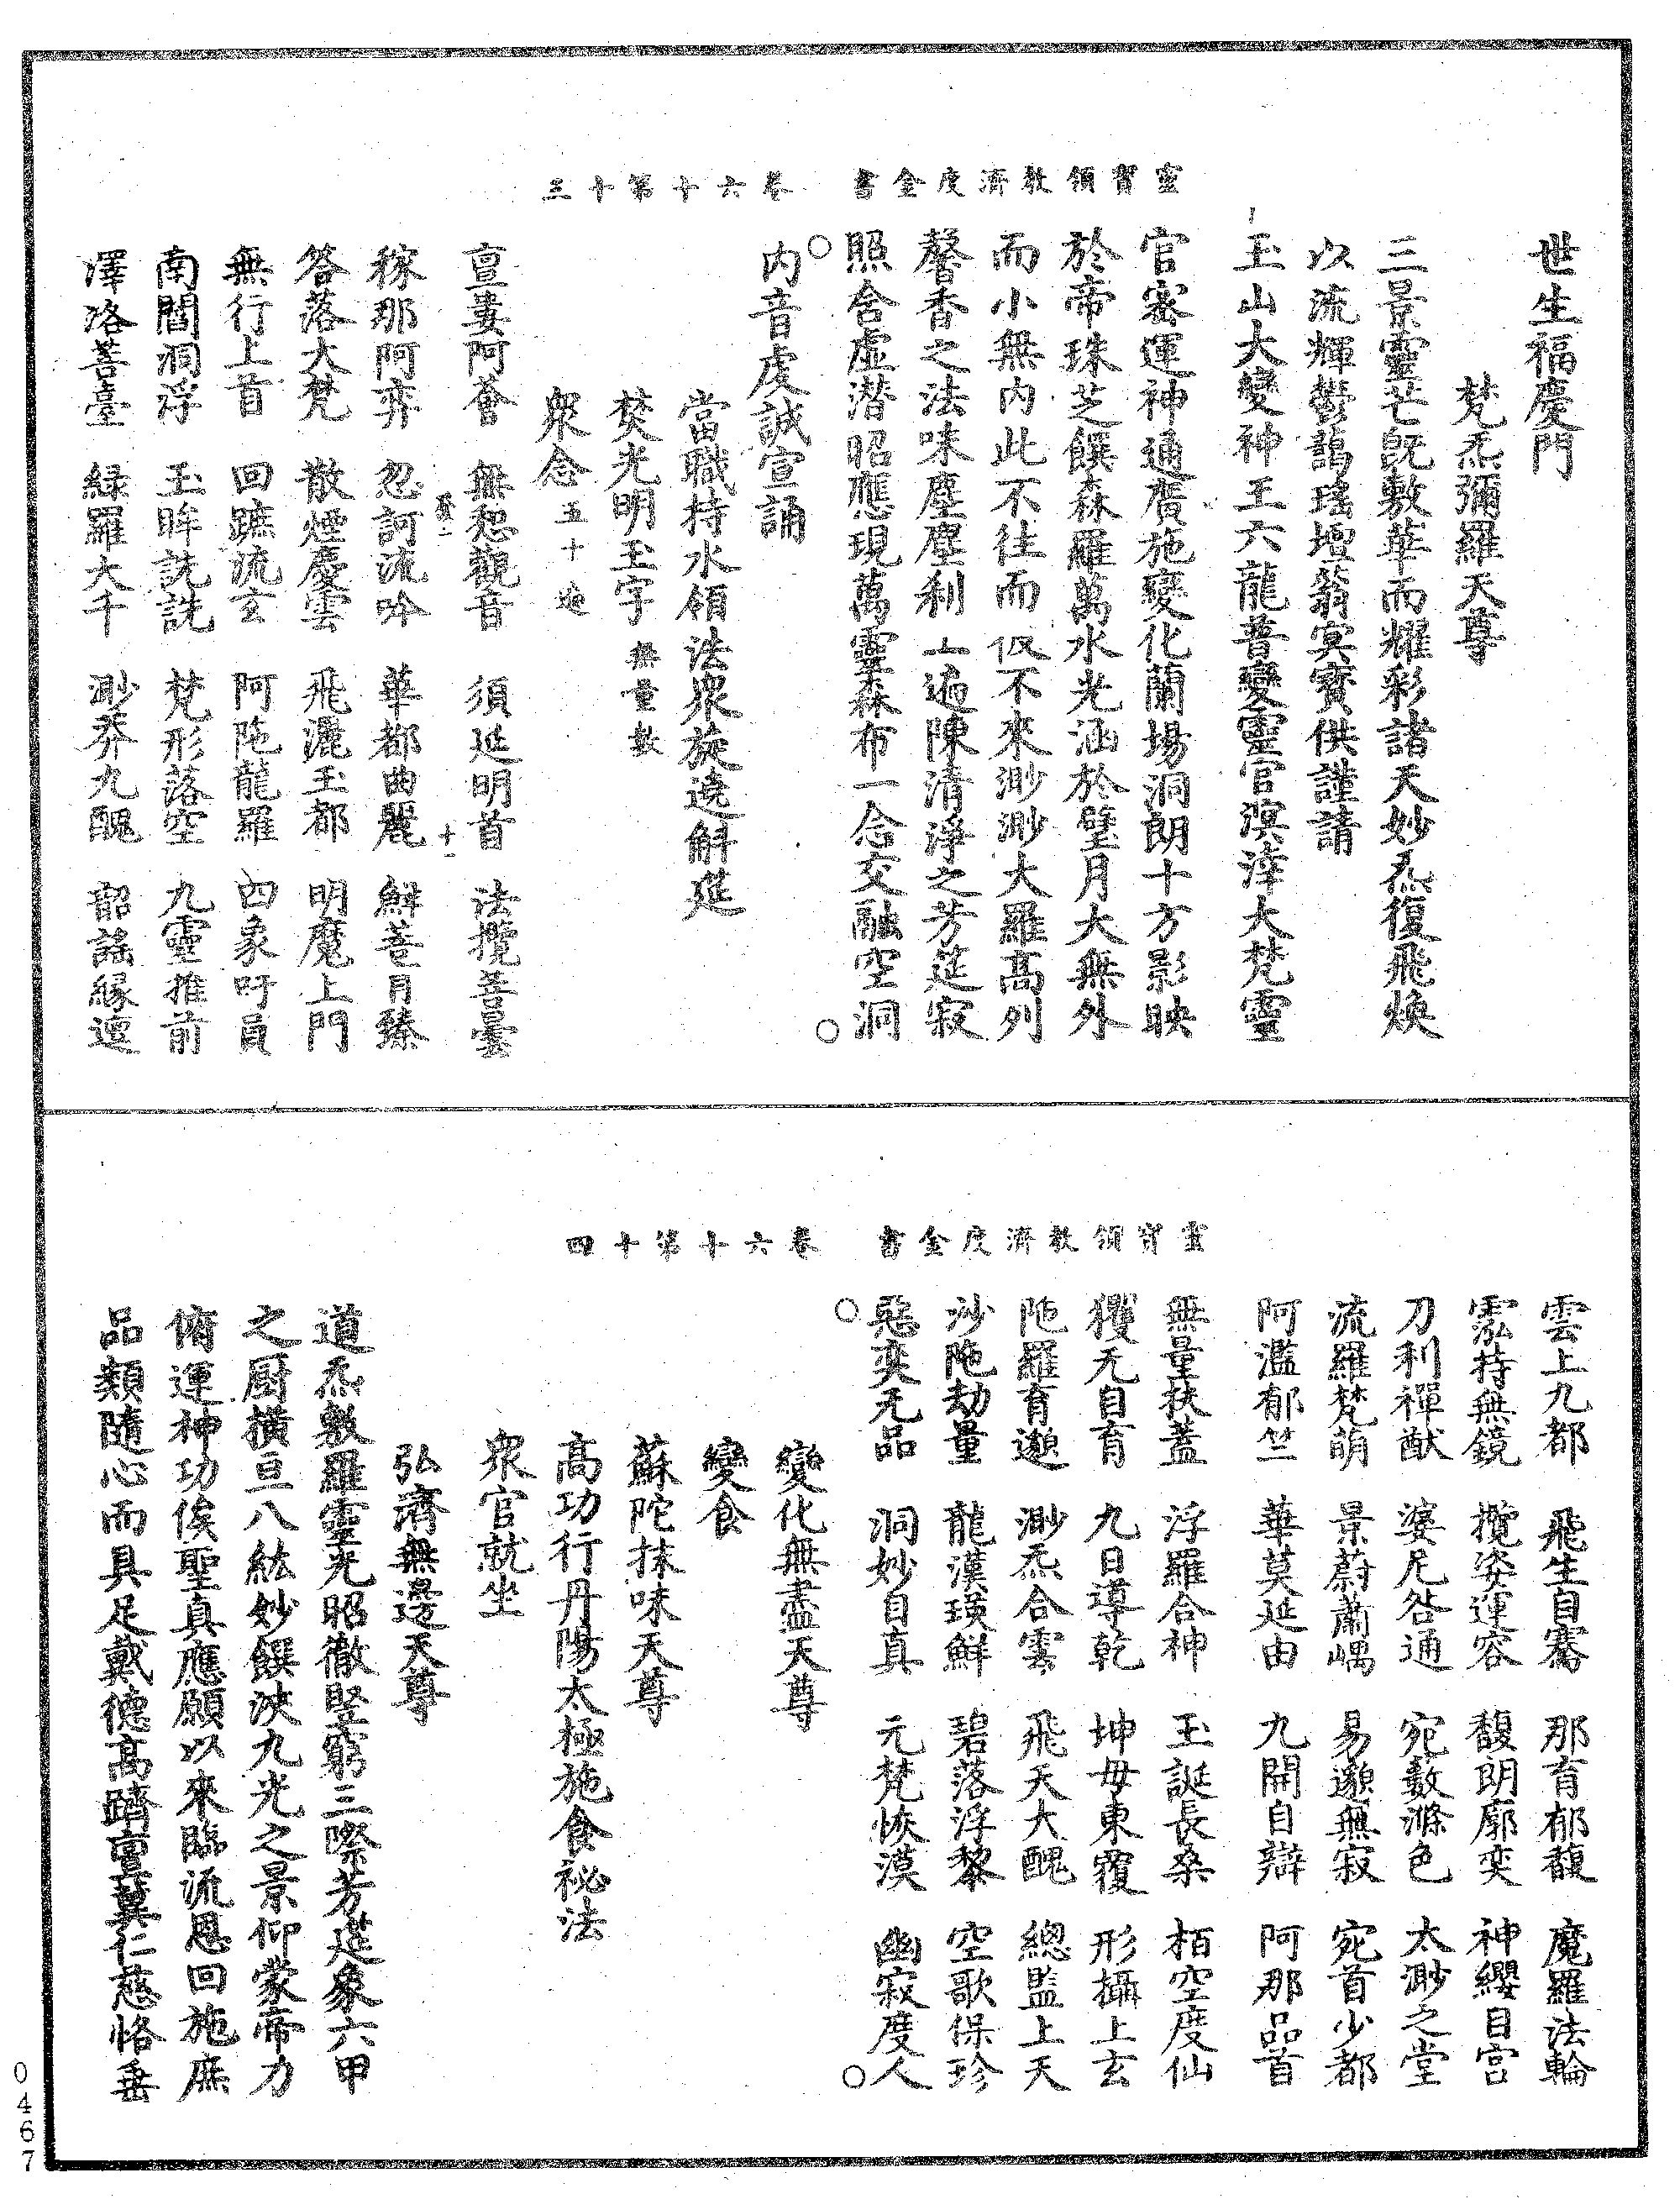 靈寶領教濟度金書　卷六十第十三
世生福慶門
梵炁彌羅天尊
三景靈芒旣敷華而耀彩諸天妙炁復飛煥
以流輝鬱藹瑤壇蓊冥寶供謹請
玉山大變神王六龍普變靈官溟涬大梵靈
官密運神通廣施變化蘭場洞朗十方影映
於帝珠芝饌森羅萬水光涵於璧月大無外
而小無内此不往而彼不來渺渺大羅高列
馨香之法味塵塵刹土遍陳清淨之芳筵寂
照含虛潜昭應現萬靈森布一念交融空洞
内音虔誠宣誦
當職持水領法衆旋遶斛筵
焚光明玉字無量數
衆念五十遍
亶婁阿薈　無惒觀音　須延明首　法攬菩曇
稼那阿弈　忽訶流吟　華都曲麗　鮮菩育臻
答落大梵　散煙慶雲　飛灑玉都　明魔上門
無行上首　回蹠流玄　阿陁龍羅　四象吁員
南閻洞浮　玉眸詵詵　梵形落空　九靈推前
澤洛菩臺　緑羅大千　渺莽九醜　韶謡緣邅
靈寶領教濟度金書　卷六十第十四
雲上九都　飛生自騫　那育郁馥　魔羅法輪
霐持無鏡　攬姿運容　馥朗廓奕　神纓自宫
刀利禪猷　婆尼咎通　宛藪滌色　太渺之堂
流羅梵萌　景蔚蕭嵎　易邈無寂　宛首少都
阿濫郁竺　華莫延由　九開自辯　阿那品首
無量扶蓋　浮羅合神　玉誕長桑　栢空度仙
玃无自育　九日導乾　坤母東覆　形攝上玄
陁羅育邈　渺炁合雲　飛天大醜　總監上天
沙陁劫量　龍漢瑛鮮　碧落浮黎　空歌保珍
惡奕无品　洞妙自真　元梵恢漠　幽寂度人
變化無盡天尊
變食
蘇陀抹味天尊
高功行丹陽太極施食祕法
衆官就坐
弘濟無邊天尊
道炁敷羅靈光昭徹竪窮三際芳筵象六甲
之厨横亘八紘妙饌浹九光之景仰蒙帝力
俯運神功俟聖真應願以來臨流恩回施庶
品類隨心而具足戴德高躋亶冀仁慈恪垂
0467